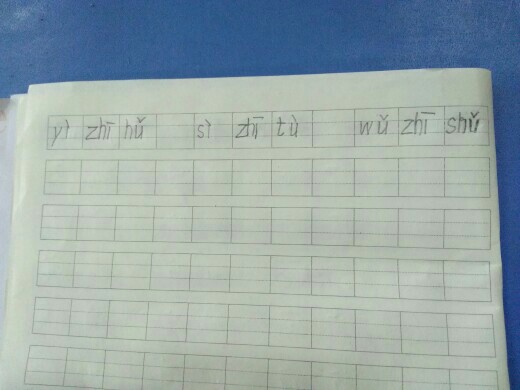 yì zhī hǔ sì zhī tù wǔ zhī shǔ